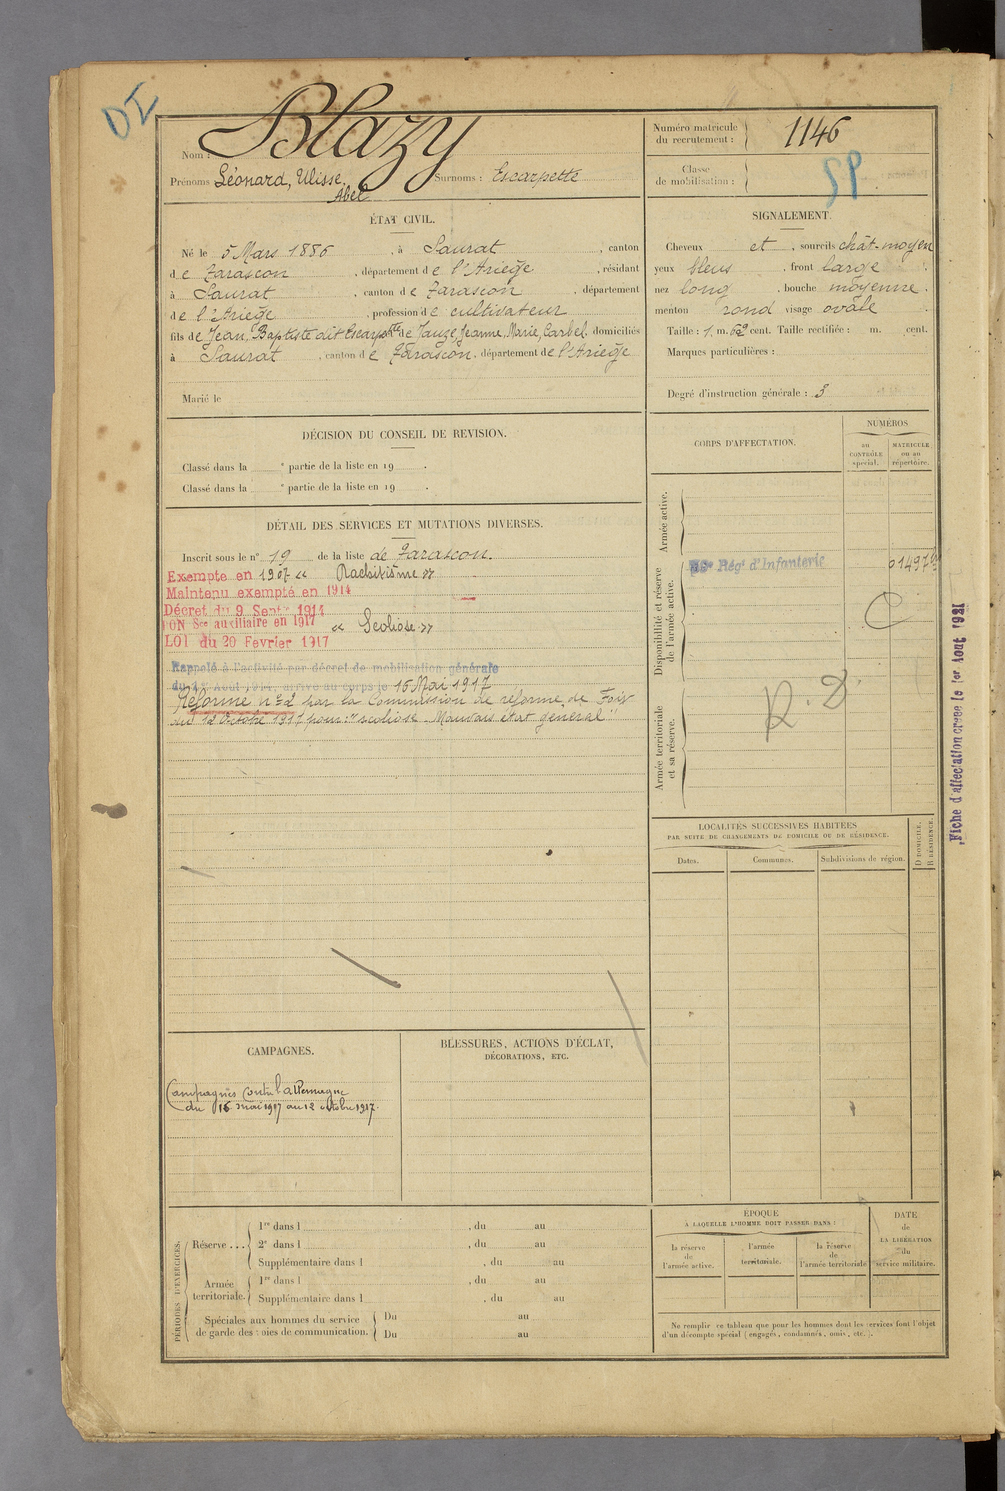 DI
Nom : Blazy
Prénoms Léonard, Ulisse, Abel Surnoms : Escarpette
Numéro matricule du recrutement : 1146
Classe de mobilisation :
SP
ÉTAT CIVIL.
Né le 5 Mars 1886, à Saurat, canton
de Tarascon, département de l'Ariège, résidant
à Saurat, canton de Tarascon, département
de l'Ariège, profession de cultivateur
fils de Jean, Baptiste dit Escarpette et de Jauze, Jeanne, Marie, Carbel, domiciliés
à Saurat, canton de Tarascon, département de l'Ariège
Marié le
SIGNALEMENT.
Cheveux et, sourcils chât-moyen
yeux bleus, front large
nez long, bouche moyenne
menton rond visage ovale
Taille : 1 m. 62 cent. Taille rectifiée : m. cent.
Marques particulières :
Degré d'instruction générale : 3
DÉCISION DU CONSEIL DE REVISION.
Classé dans la e partie de la liste en 19 .
Classé dans la e partie de la liste en 19 .
DÉTAIL DES SERVICES ET MUTATIONS DIVERSES.
Inscrit sous le n° 19 de la liste de Tarascon.
Exempté en 1907 « Rachitisme »
Maintenu exempté en 1914
Décret du 9 Septre 1914
BON Sce auxiliaire en 1917 « Scoliose »
LOI du 20 Fevrier 1917
Rappelé à l'activité par décret de mobilisation générale
du 1er Aout 1914, arrivé au corps le 16 Mai 1917
Réformé n° 2 par la Commission de réforme de Foix
du 12 Octobre 1917 pour : "scoliose - Mauvais état général"
CORPS D'AFFECTATION.
NUMÉROS
au CONTRÔLE spécial.
MATRICULE ou au répertoire.
Armée active.
Disponibilité et réserve de l'armée active.
Armée territoriale et sa réserve.
Rég' d'Infanterie
R. D.
Fiche d'affectation créée le 1er Aout 1921
LOCALITÉS SUCCESSIVES HABITÉES
PAR SUITE DE CHANGEMENTS DE DOMICILE OU DE RÉSIDENCE.
Dates.
Communes.
Subdivisions de région.
D DOMICILE.
R RÉSIDENCE.
CAMPAGNES.
Campagnes contre l'allemagne
du 16 mai 1917 au 12 octobre 1917.
BLESSURES, ACTIONS D'ÉCLAT,
DÉCORATIONS, ETC.
PÉRIODES D'EXERCICES.
Réserve ...
1re dans l , du au
2e dans l , du au
Supplémentaire dans l , du au
Armée territoriale.
1re dans l , du au
Supplémentaire dans l , du au
Spéciales aux hommes du service de garde des voies de communication.
Du au
Du au
ÉPOQUE
À LAQUELLE L'HOMME DOIT PASSER DANS :
la réserve de l'armée active.
l'armée territoriale.
la réserve de l'armée territoriale
DATE de LA LIBÉRATION du service militaire.
Ne remplir ce tableau que pour les hommes dont les services font l'objet
d'un décompte spécial (engagés, condamnés, omis, etc.).